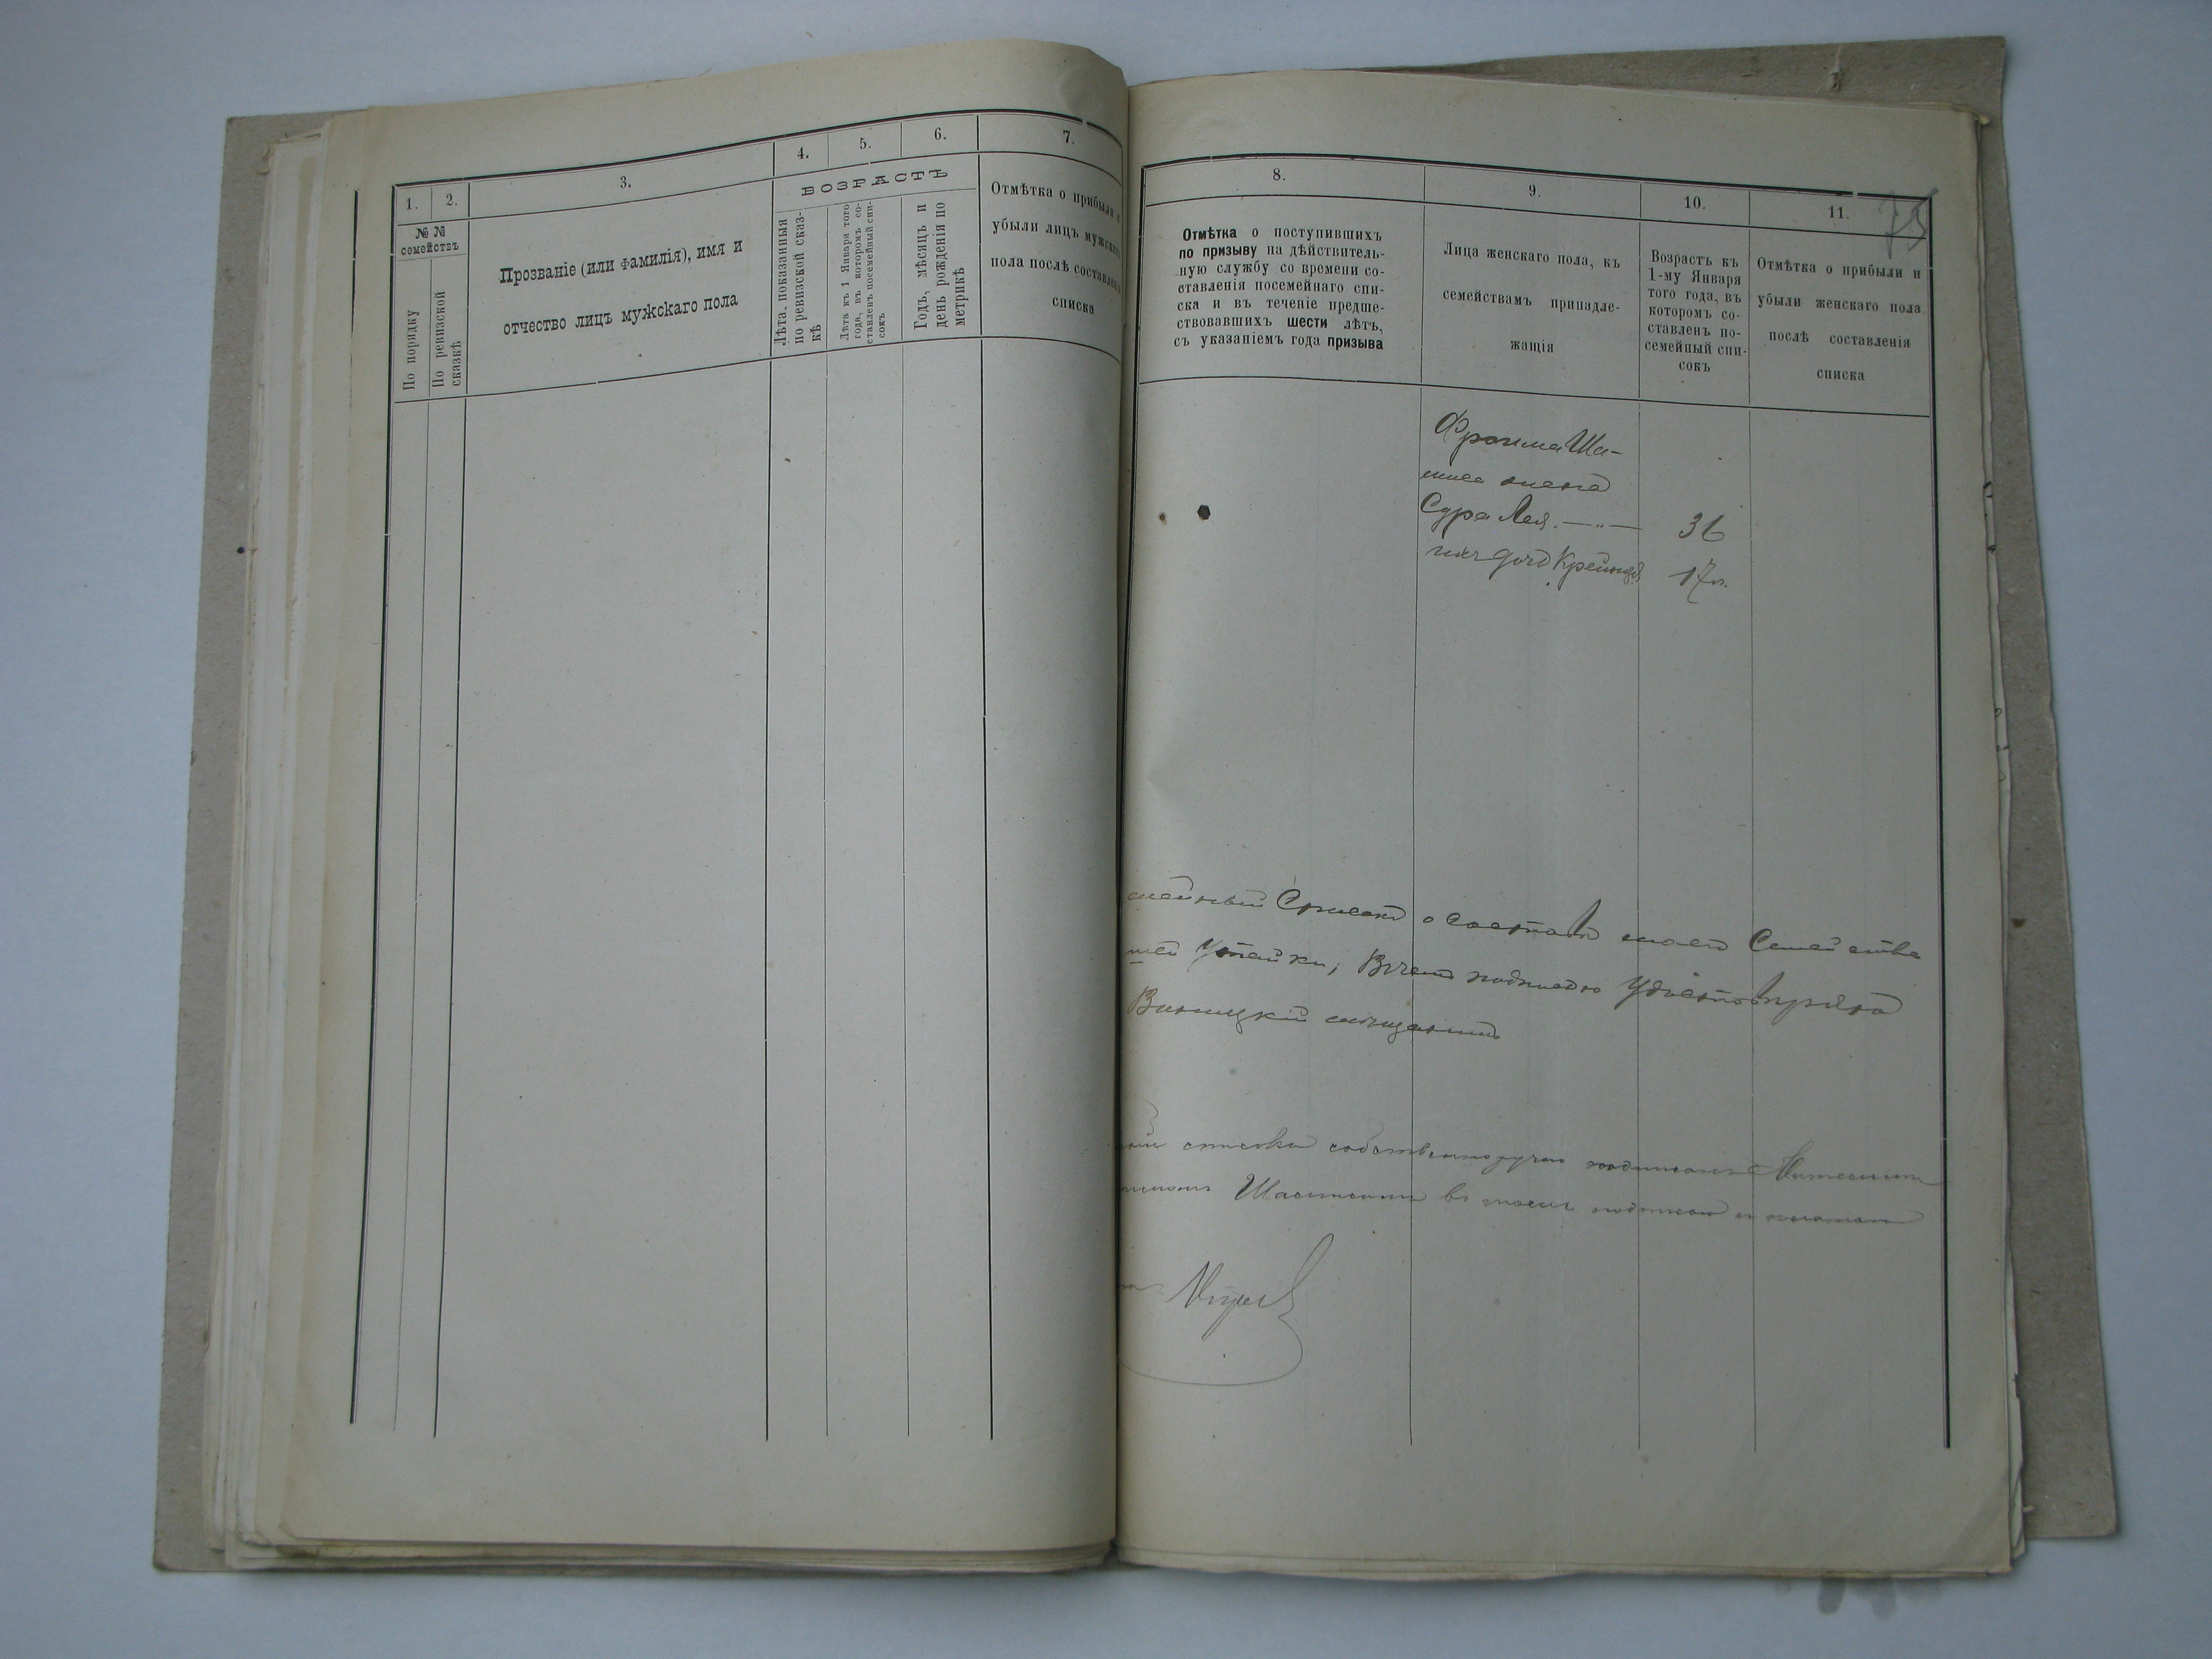 1.
2.
3.
4.
5.
6.
7.
№ №
семействъ
По порядку
По ревизской
сказкѣ
Прозваніе (или фамилія), имя и
отчество лицъ мужскаго пола
ВОЗРАСТЪ
Лѣта, показанныя
по ревизской сказ-
кѣ
Лѣта къ 1 Января того
года, въ которомъ со-
ставленъ посемейный спи-
сокъ
Годъ, мѣсяцъ и
день рожденія по
метрикѣ
Отмѣтка о прибыли и
убыли лицъ мужскаго
пола послѣ составленія
списка
8.
9.
10.
11.
73
Отмѣтка о поступившихъ
по призыву на дѣйствитель-
ную службу со времени со-
ставленія посемейнаго спи-
ска и въ теченіе предше-
ствовавшихъ шести лѣтъ,
съ указаніемъ года призыва
Лица женскаго пола, къ
семействамъ принадле-
жащія
Возрастъ къ
1-му Января
того года, въ
которомъ со-
ставленъ по-
семейный спи-
сокъ
Отмѣтка о прибыли и
убыли женскаго пола
послѣ составленія
списка
Фроима Ша-
миса жена
Сура Лея. — „ — 36
ихъ дочь Крейндя 17 л.
мейный Списокъ о составѣ моего Семейства
шей утайки, Въ чемъ подписью Удостовѣряю
Виницкій мѣщанинъ
списка собственноручно подписанъ
Шамисомъ въ томъ подписью и печатью